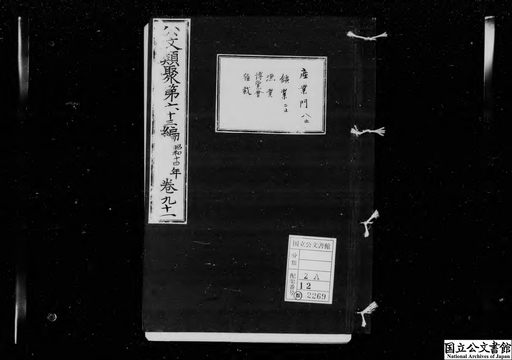 公文類聚第六十三編 昭和十四年 巻九十一
産業門八止
鉱業二止
漁業
博覧会
雑載
国立公文書館
分類
配架番号
2 A
12
2269
国立公文書館
National Archives of Japan